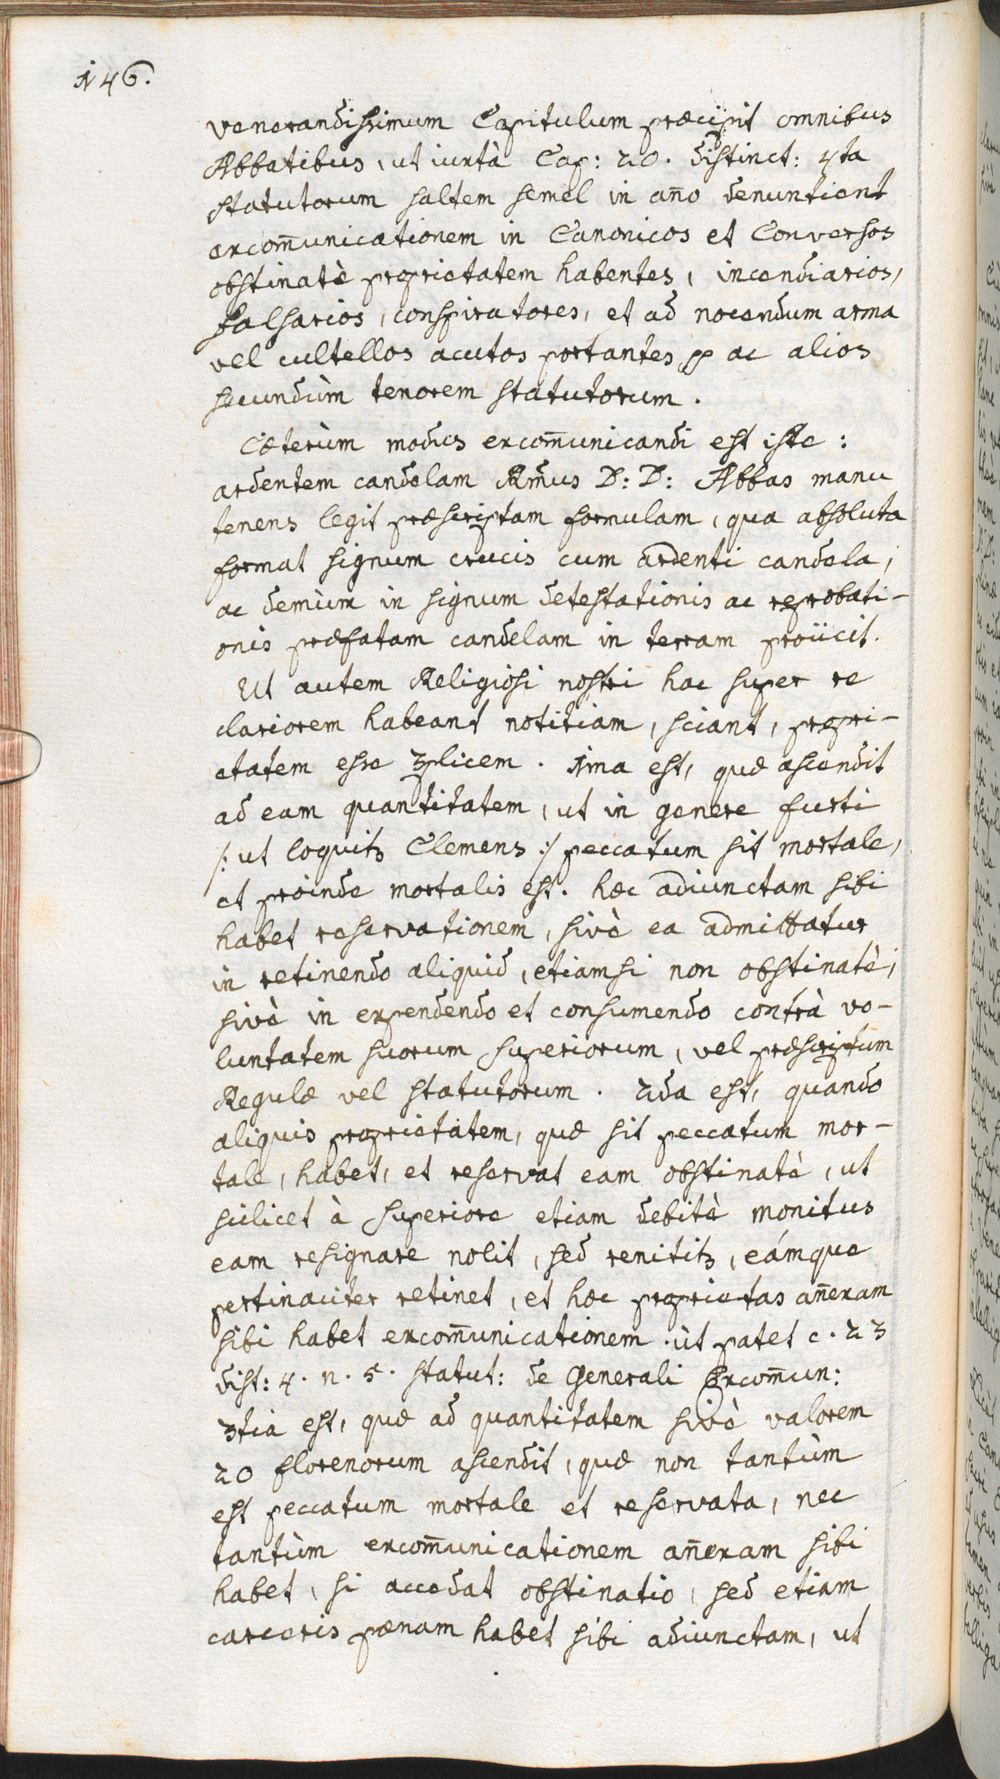 146.
venerandissimum Capitulum præcipit omnibus
Abbatibus, ut iuxtà Cap: 20. distinct: 4ta
statutorum saltem semel in año denuntient
excom̄unicationem in Canonicos et Conversos
obstinatè proprietatem habentes, incendiarios,
falsarios, conspiratores, et ad nocendum arma
vel cultellos acutos portantes ac alios
secundùm tenorem statutorum.
Cæterùm modus excom̄unicandi est iste:
ardentem candelam Rm̄us D: D: Abbas manu
tenens legit præscriptam formulam, qua absoluta
format signum crucis cum ardenti candela,
ac demùm in signum detestationis ac reprobati-
onis præfatam candelam in terram proiicit.
Ut autem Religiosi nostri hac super re
clariorem habeant notitiam, sciant, propri-
etatem esse 3plicem. 1ma est, quæ ascendit
ad eam quantitatem, ut in genere furti
/: ut loquitz Clemens :/ peccatum sit mortale,
et proinde mortalis est. hæc adiunctam sibi
habet reservationem, sivè ea admittatur
in retinendo aliquid, etiamsi non obstinatè,
sivè in expendendo et consumendo contrà vo-
luntatem suorum superiorum, vel præscriptum
Regulæ vel statutorum. 2da est, quando
aliquis proprietatem, quæ sit peccatum mor-
tale, habet, et reservat eam obstinatè, ut
scilicet à superiore etiam debitè monitus
eam resignare nolit, sed renititz, eámque
pertinaciter retinet, et hæc proprietas añexam
sibi habet excom̄unicationem. ùt patet c. 23
dist: 4. n. 5. statut: de Generali Excom̄un:
3tia est, quæ ad quantitatem sivè valorem
20 florenorum ascendit, quæ non tantùm
est peccatum mortale et reservata, nec
tantùm excom̄unicationem añexam sibi
habet, si accedat obstinatio, sed etiam
carceris pœnam habet sibi adiunctam, ut